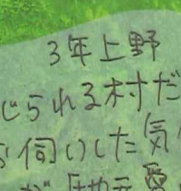 3年上野
じられる村だ
伺いした気